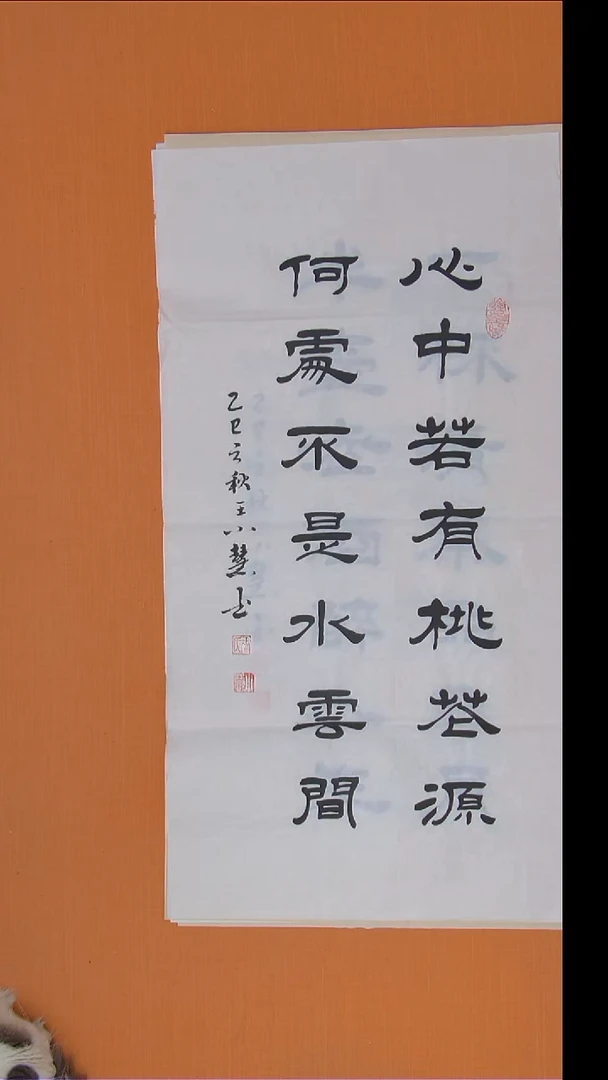 心中若有桃花源
何處不是水雲間
乙巳之秋王小慧书